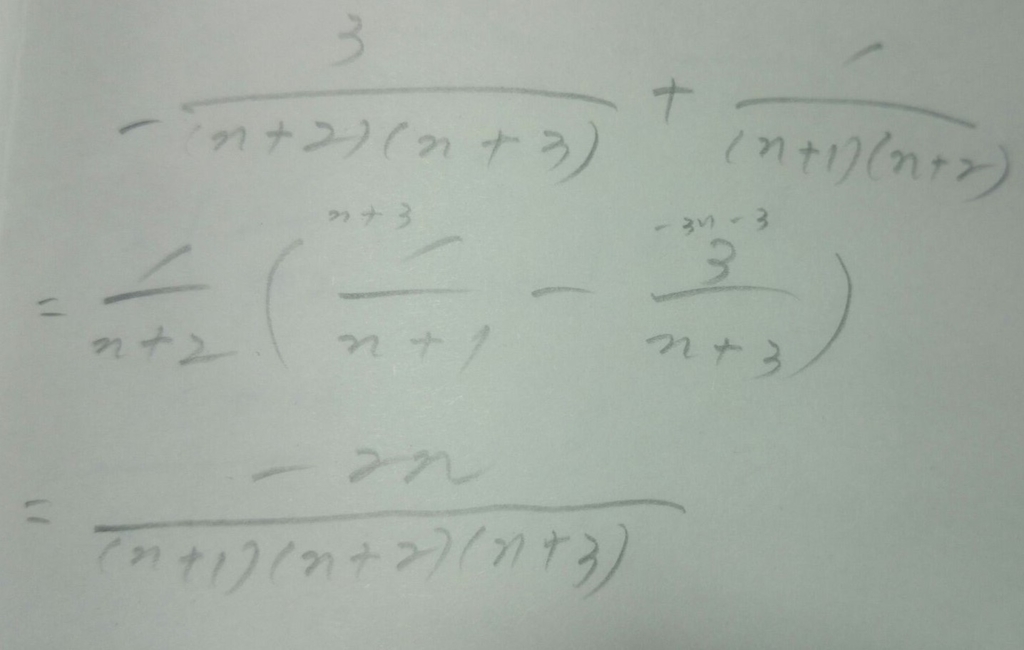 - 3/((n+2)(n+3)) + 1/((n+1)(n+2))
n+3 -3n-3
= 1/(n+2) ( 1/(n+1) - 3/(n+3) )
= -2n/((n+1)(n+2)(n+3))